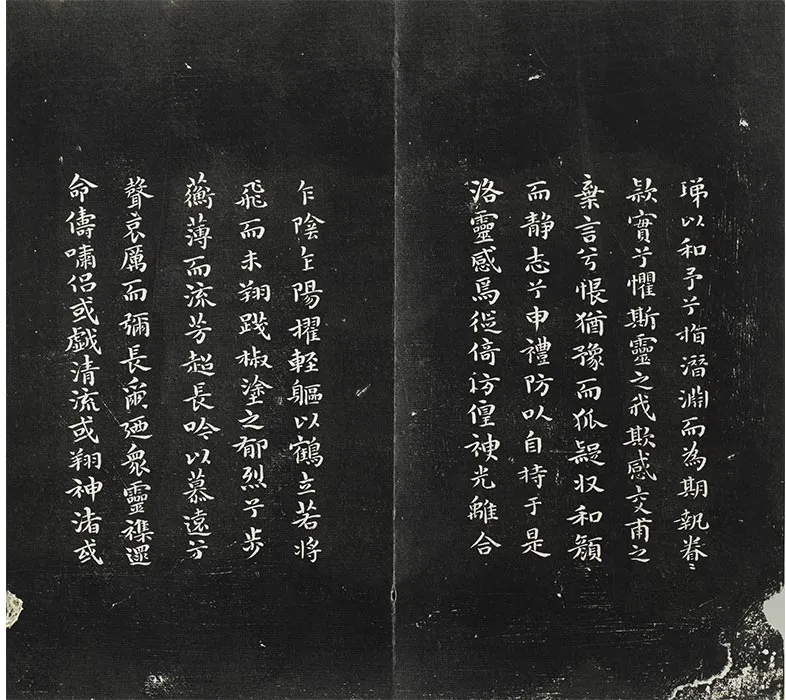 珶以和予兮指潛淵而為期執眷〻
款實兮懼斯靈之我欺感交甫之
棄言兮悵猶豫而狐疑收和顏
而静志兮申禮防以自持于是
洛靈感焉徙倚彷徨神光離合
乍陰乍陽擢輕軀以鶴立若將
飛而未翔踐椒塗之郁烈兮步
蘅薄而流芳超長吟以慕遠兮
聲哀厲而彌長爾迺衆靈襍遝
命儔嘯侶或戲清流或翔神渚或